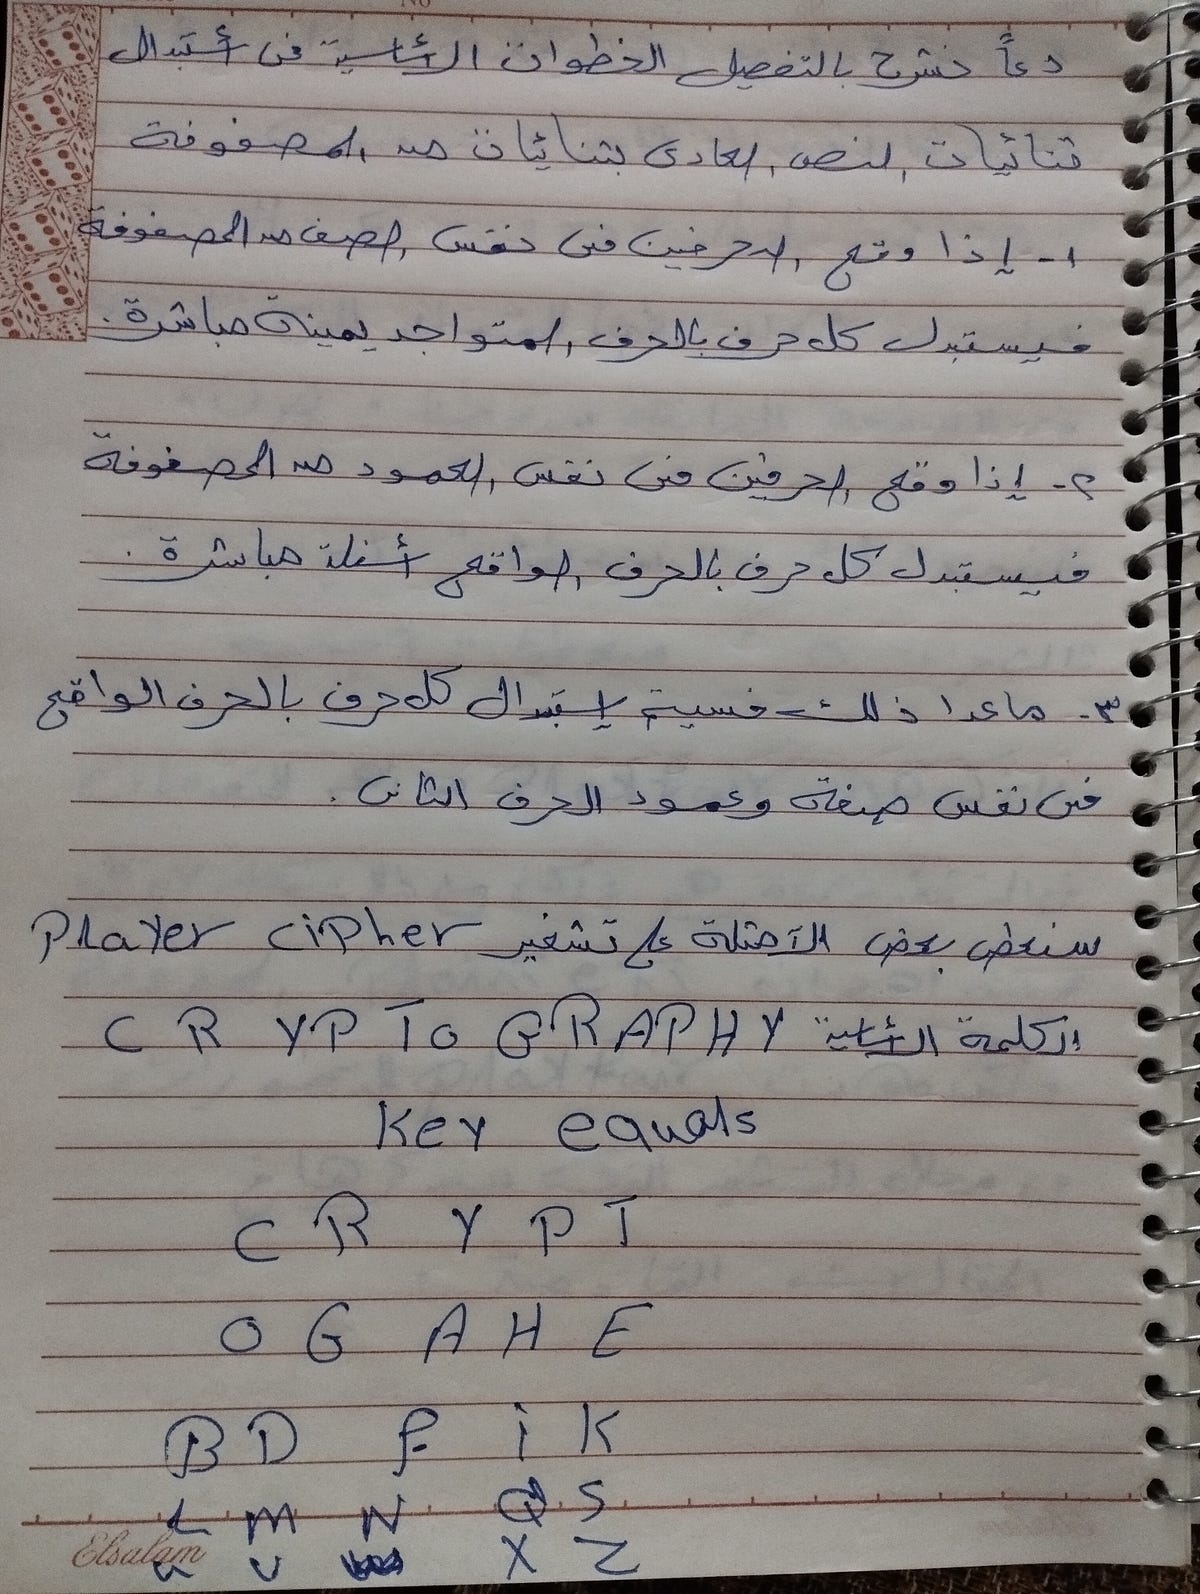 دعاً نشرح بالتفصيل الخطوات الأساسية فى أستبدال
ثنائيات النص العادى بثنائيات من المصفوفة
١- إذا وقع الحرفين فى نفس الصف من المصفوفة
فيستبدل كل حرف بالحرف المتواجد يمينة مباشرة.
٢- إذا وقع الحرفين فى نفس العمود من المصفوفة
فيستبدل كل حرف بالحرف الواقع أسفلة مباشرة.
٣- ماعدا ذلك فسيتم إستبدال كل حرف بالحرف الواقع
فى نفس صفة وعمود الحرف الثانى.
سنعض بعض الأمثلة على تشفير Player cipher
الكلمة الأساسية CRYPToGRAPHY
Key equals
C R Y P T
O G A H E
B D F i K
L M N Q S
u v X Z
Elsalam